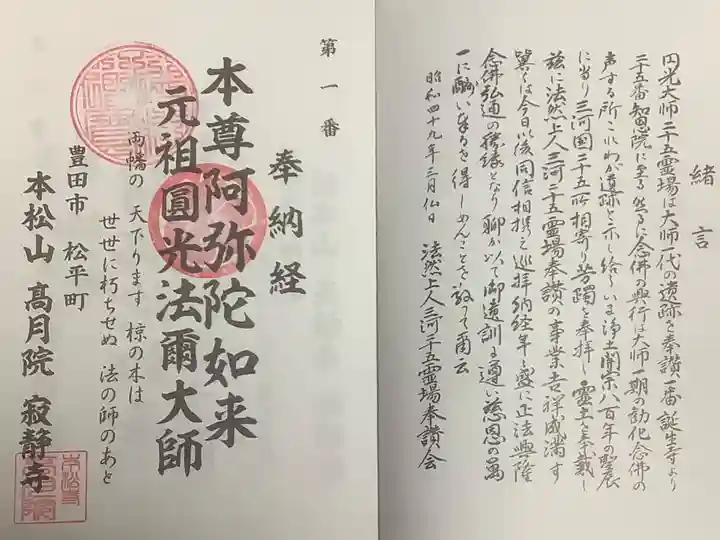 緒言
円光大師二十五霊場は大師一代の遺跡を奉讃一番誕生寺より
二十五番知恩院に至る然るに念佛の興行は大師一期の勧化念佛の
声する所これわが遺跡と示し給ういま浄土開宗八百年の聖辰
に当り三河国二十五ヶ所相寄り芳躅を奉拝し霊立を奉戴し
茲に法然上人三河二十五霊場奉讃の事業吉祥成満す
翼くは今日以後同信相携え巡拝納経年と盛に正法興隆
念佛弘通の勝縁となり聊か以て御遺訓に遵い慈恩の萬
一に酬い奉るを得しめんことを敬って曰云
昭和四十九年三月仏日 法然上人三河二十五霊場奉讃会
第一番
奉納経
本尊阿弥陀如来
元祖圓光法爾大師
両幡の 天下ります 椋の木は
世世に朽ちせぬ 法の師のあと
豊田市 松平町
本松山 高月院 寂静寺